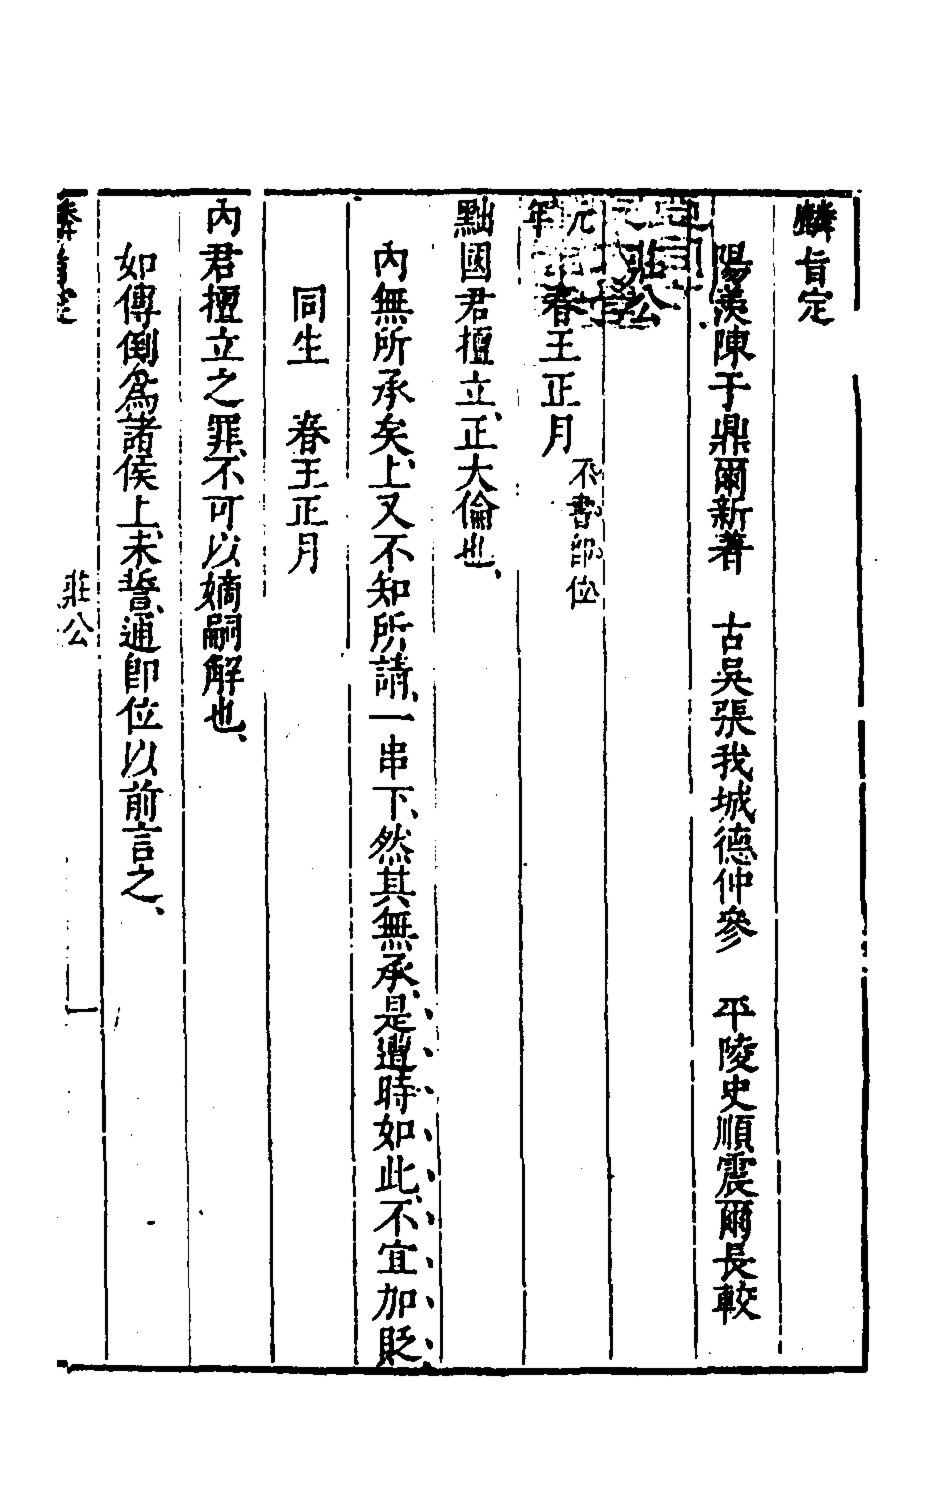 麟旨定
陽羨陳于鼎爾新著　古吳張我城德仲參　平陵史順震爾長較
莊公
元年　春王正月不書即位
黜國君擅立、正大倫也、
內無所承矣、上又不知所請、一串下、然其無承、是遭時如此、不宜加貶
同生　春王正月
內君擅立之罪、不可以嫡嗣解也、
如傳倒為諸侯上、未誓、通即位以前言之、
麟旨定　莊公　一